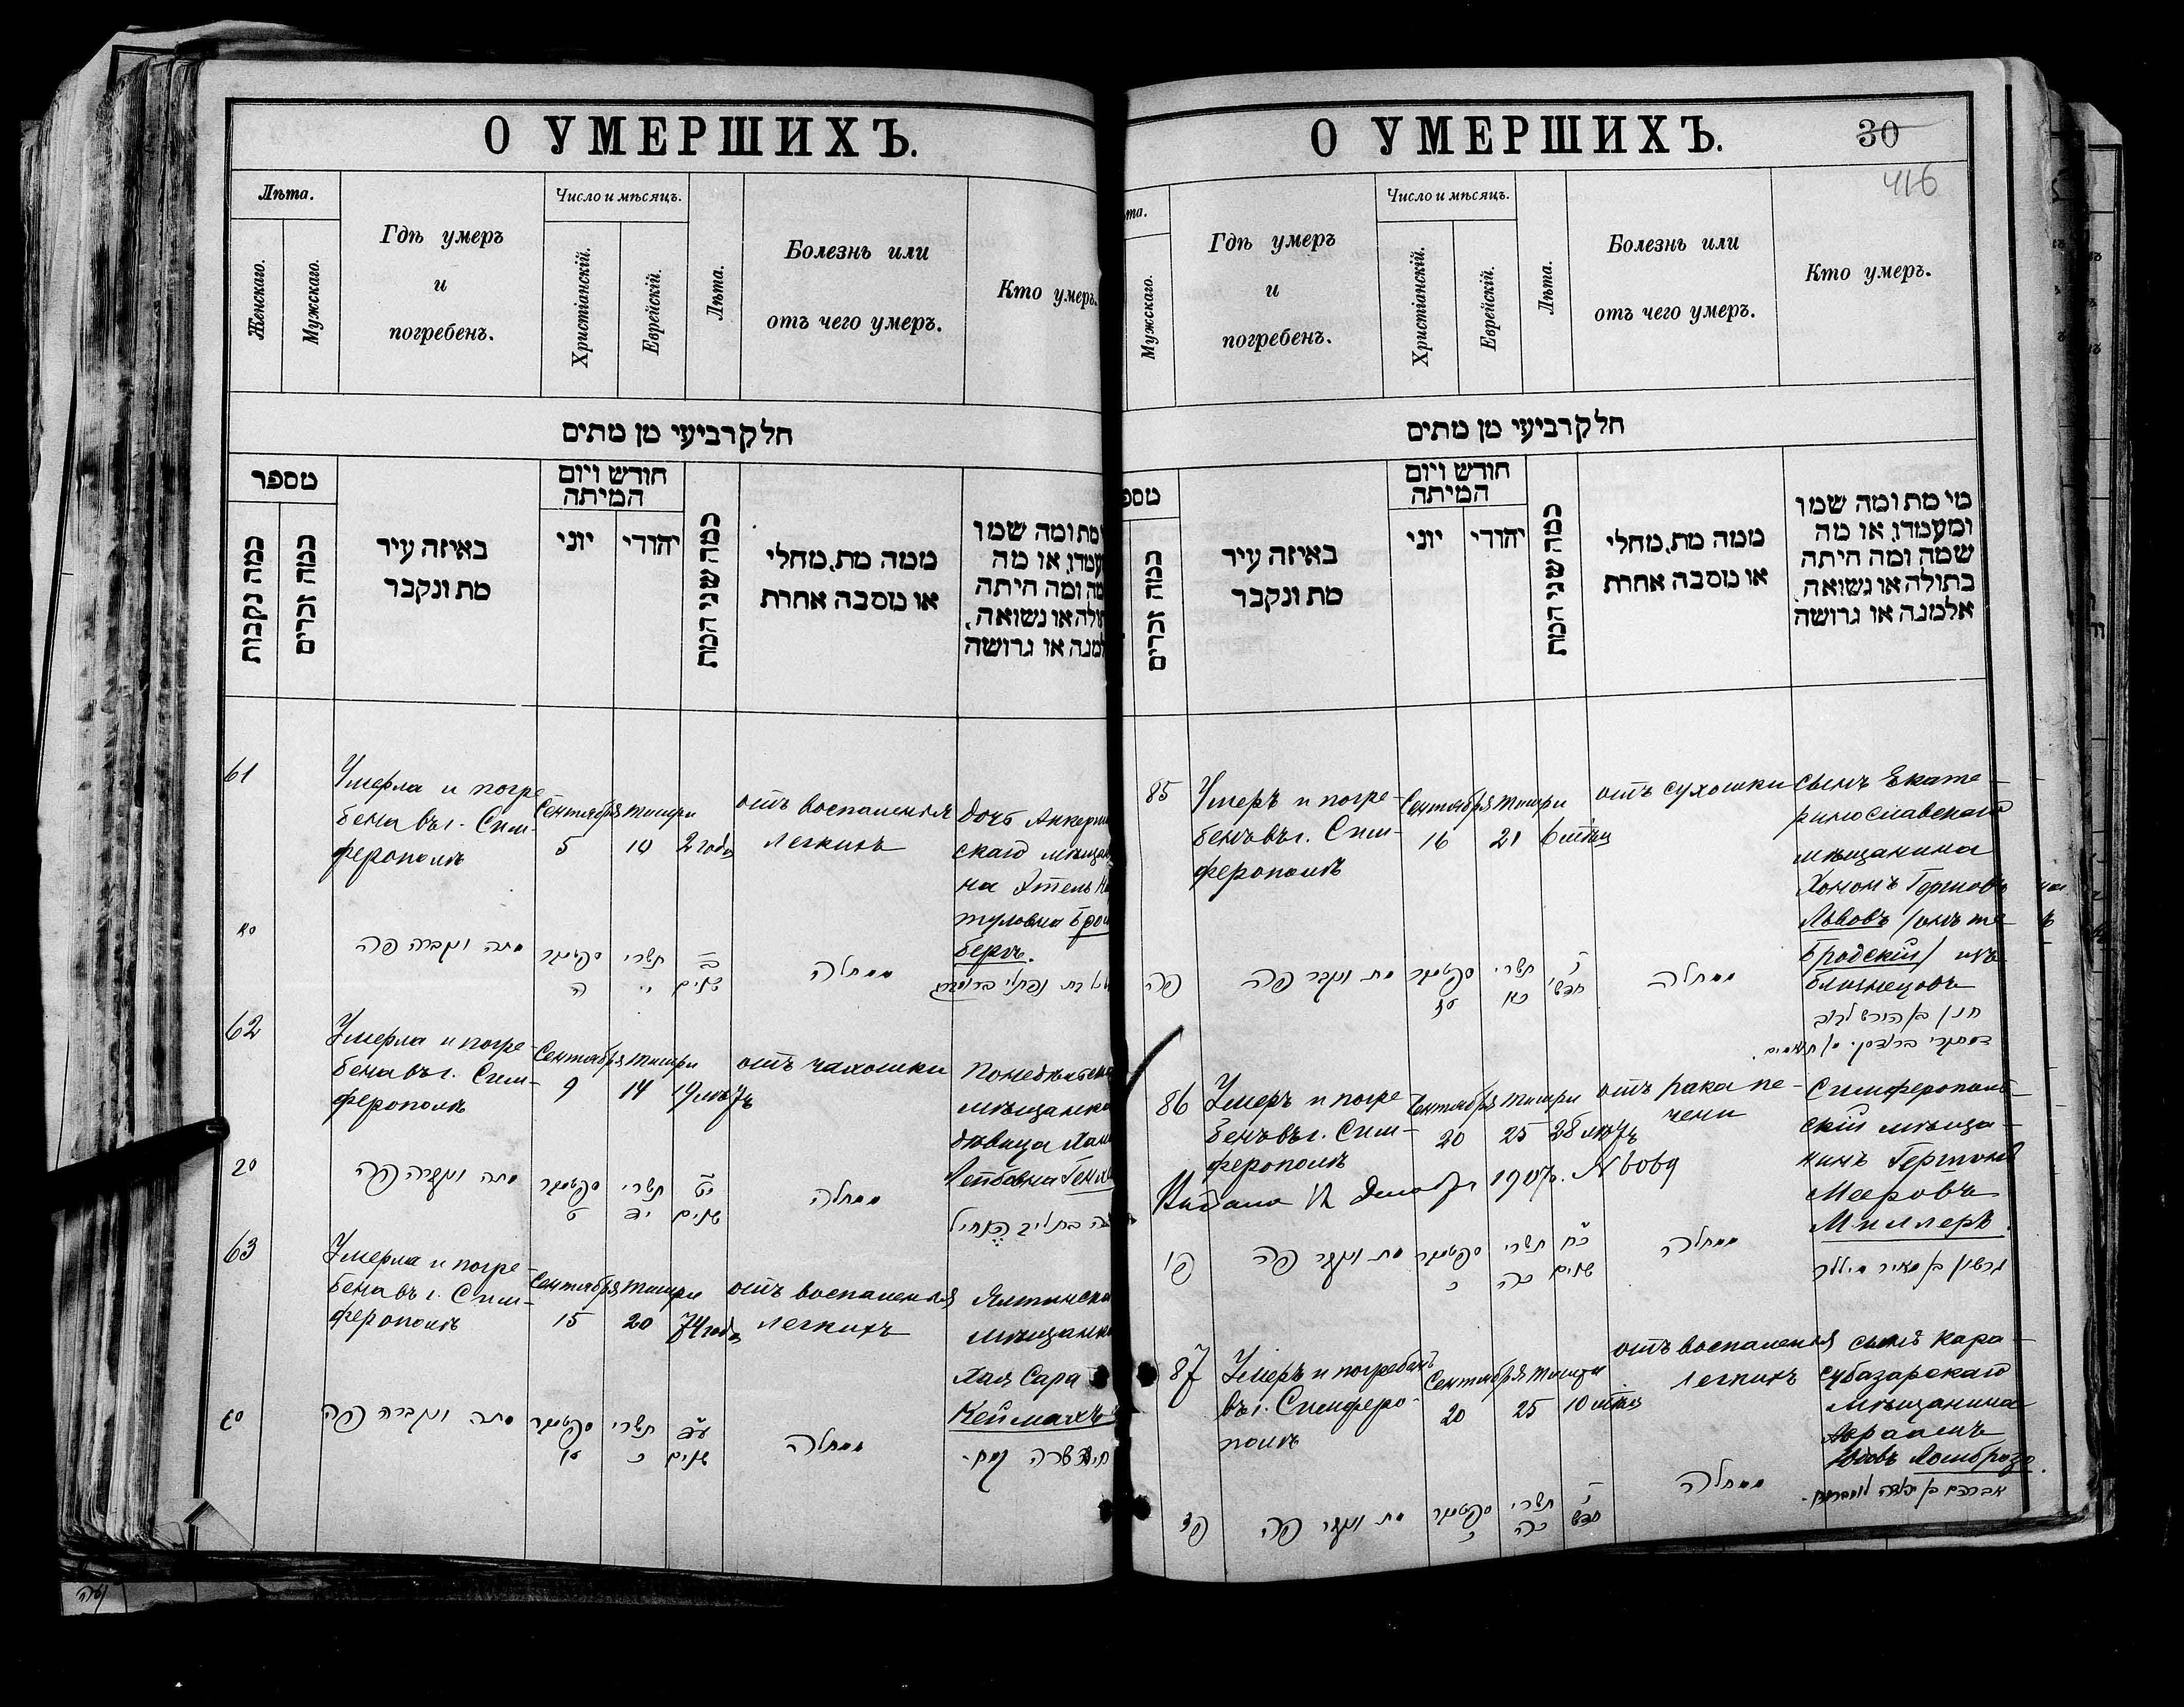 О УМЕРШИХЪ.
Лѣта.
Женскаго.
Мужскаго.
Гдѣ умеръ
и
погребенъ.
Число и мѣсяцъ.
Христіанскій.
Еврейскій.
Лѣта.
Болезнь или
отъ чего умеръ.
Кто умеръ.
חלק רביעי מן מתים
מספר
כמה נקבות
כמה זכרים
באיזה עיר
מת ונקבר
חודש ויום
המיתה
יוני
יהודי
כמה שני המת
ממה מת, מחלי
או מסבה אחרת
מת ומה שמו
או מה
ומה היתה
או נשואה,
או גרושה
61
Умерла и погре-
бена въ г. Сим-
ферополѣ
Сентября
5
Тишри
10
2 года
отъ воспаленія
легкихъ
Дочь
скаго
на
берг.
מתה ונקברה פה
ספטמבר
ה
תשרי
י
ב
שנים
ממחלה
62
Умерла и погре-
бена въ г. Сим-
ферополѣ
Сентября
9
Тишри
14
19 лѣтъ
отъ чахотки
дѣвица
מתה ונקברה פה
ספטמבר
ט
תשרי
יד
יט
שנים
ממחלה
63
Умерла и погре-
бена въ г. Сим-
ферополѣ
Сентября
15
Тишри
20
74 года
отъ воспаленія
легкихъ
Хая Сара
Неймахъ
מתה ונקברה פה
ספטמבר
טו
תשרי
כ
עד
שנים
ממחלה
חיה שרה
О УМЕРШИХЪ.
30
416
Мужскаго.
Гдѣ умеръ
и
погребенъ.
Число и мѣсяцъ.
Христіанскій.
Еврейскій.
Лѣта.
Болезнь или
отъ чего умеръ.
Кто умеръ.
חלק רביעי מן מתים
כמה זכרים
באיזה עיר
מת ונקבר
חודש ויום
המיתה
יוני
יהודי
כמה שני המת
ממה מת, מחלי
או מסבה אחרת
מי מת ומה שמו
ומעמדו, או מה
שמה ומה היתה
בתולה או נשואה,
אלמנה או גרושה
85
Умеръ и погре-
бенъ въ г. Сим-
ферополѣ
Сентября
16
Тишри
21
6 мѣсц
отъ сухотки
сынъ Екате-
ринославскаго
мѣщанина
Хононъ Гершовъ
Львовъ /онъ же
Бродскій/ изъ
близнецовъ
פה
מת ונקבר פה
ספטמבר
טז
תשרי
כא
ו
חדשי
ממחלה
חנן בן הירש לבוב
86
Умеръ и погре-
бенъ въ г. Сим-
ферополѣ
Сентября
20
Тишри
25
28 лѣтъ
отъ рака пе-
чени
Симферополь-
скій мѣща-
нинъ Гершонъ
Мееровъ
Миллеръ
Выдана 12 Декабря 1907г.
פו
מת ונקבר פה
ספטמבר
כ
תשרי
כה
כח
שנים
ממחלה
גרשון בן מאיר מיללר
87
Умеръ и погребенъ
въ г. Симферо-
полѣ
Сентября
20
Тишри
25
10 мѣсц
отъ воспаленія
легкихъ
сынъ Кара-
субазарскаго
мѣщанина
Авраамъ
Ломброзо.
פז
מת ונקבר פה
ספטמבר
כ
תשרי
כה
י
חדש
ממחלה